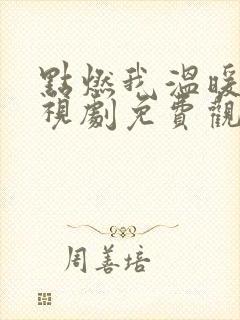 點燃我溫暖
視劇免費觀
周善培